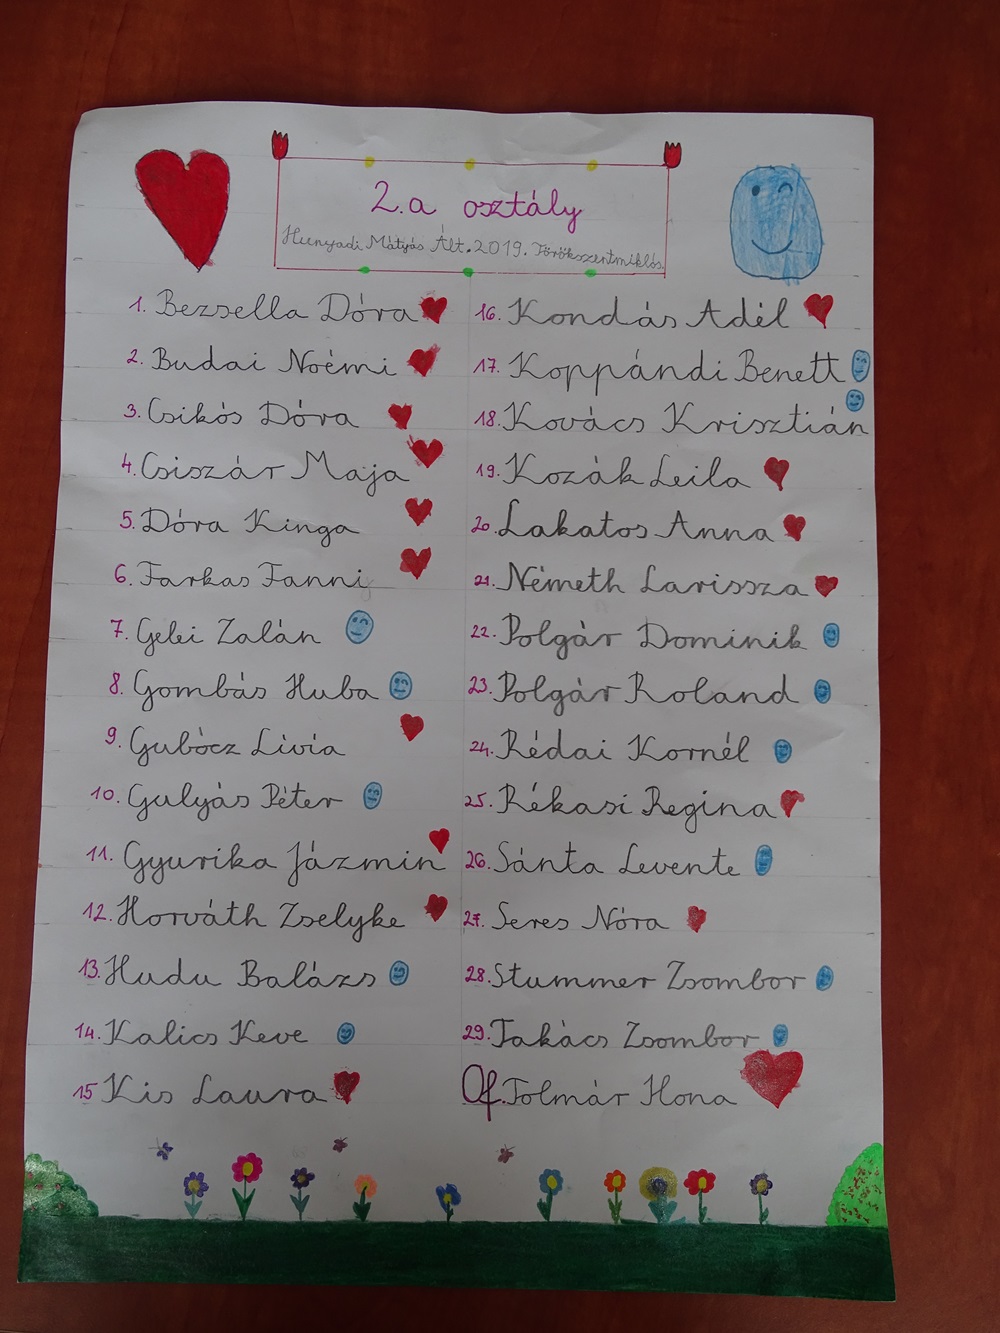 2.a osztály
Hunyadi Mátyás Ált. 2019. Törökszentmiklós
1. Bezsella Dóra
2. Budai Noémi
3. Csikós Dóra
4. Csiszár Maja
5. Dóra Kinga
6. Farkas Fanni
7. Gelei Zalán
8. Gombás Huba
9. Gubócz Lívia
10. Gulyás Péter
11. Gyurika Jázmin
12. Horváth Zselyke
13. Hudu Balázs
14. Kalics Keve
15 Kis Laura
16. Kondás Adél
17. Koppándi Benett
18. Kovács Krisztián
19. Kozák Leila
20. Lakatos Anna
21. Németh Larissza
22. Polgár Dominik
23. Polgár Roland
24. Rédai Kornél
25. Rékasi Regina
26. Sánta Levente
27. Seres Nóra
28. Stummer Zsombor
29. Takács Zsombor
Of. Tolmár Ilona